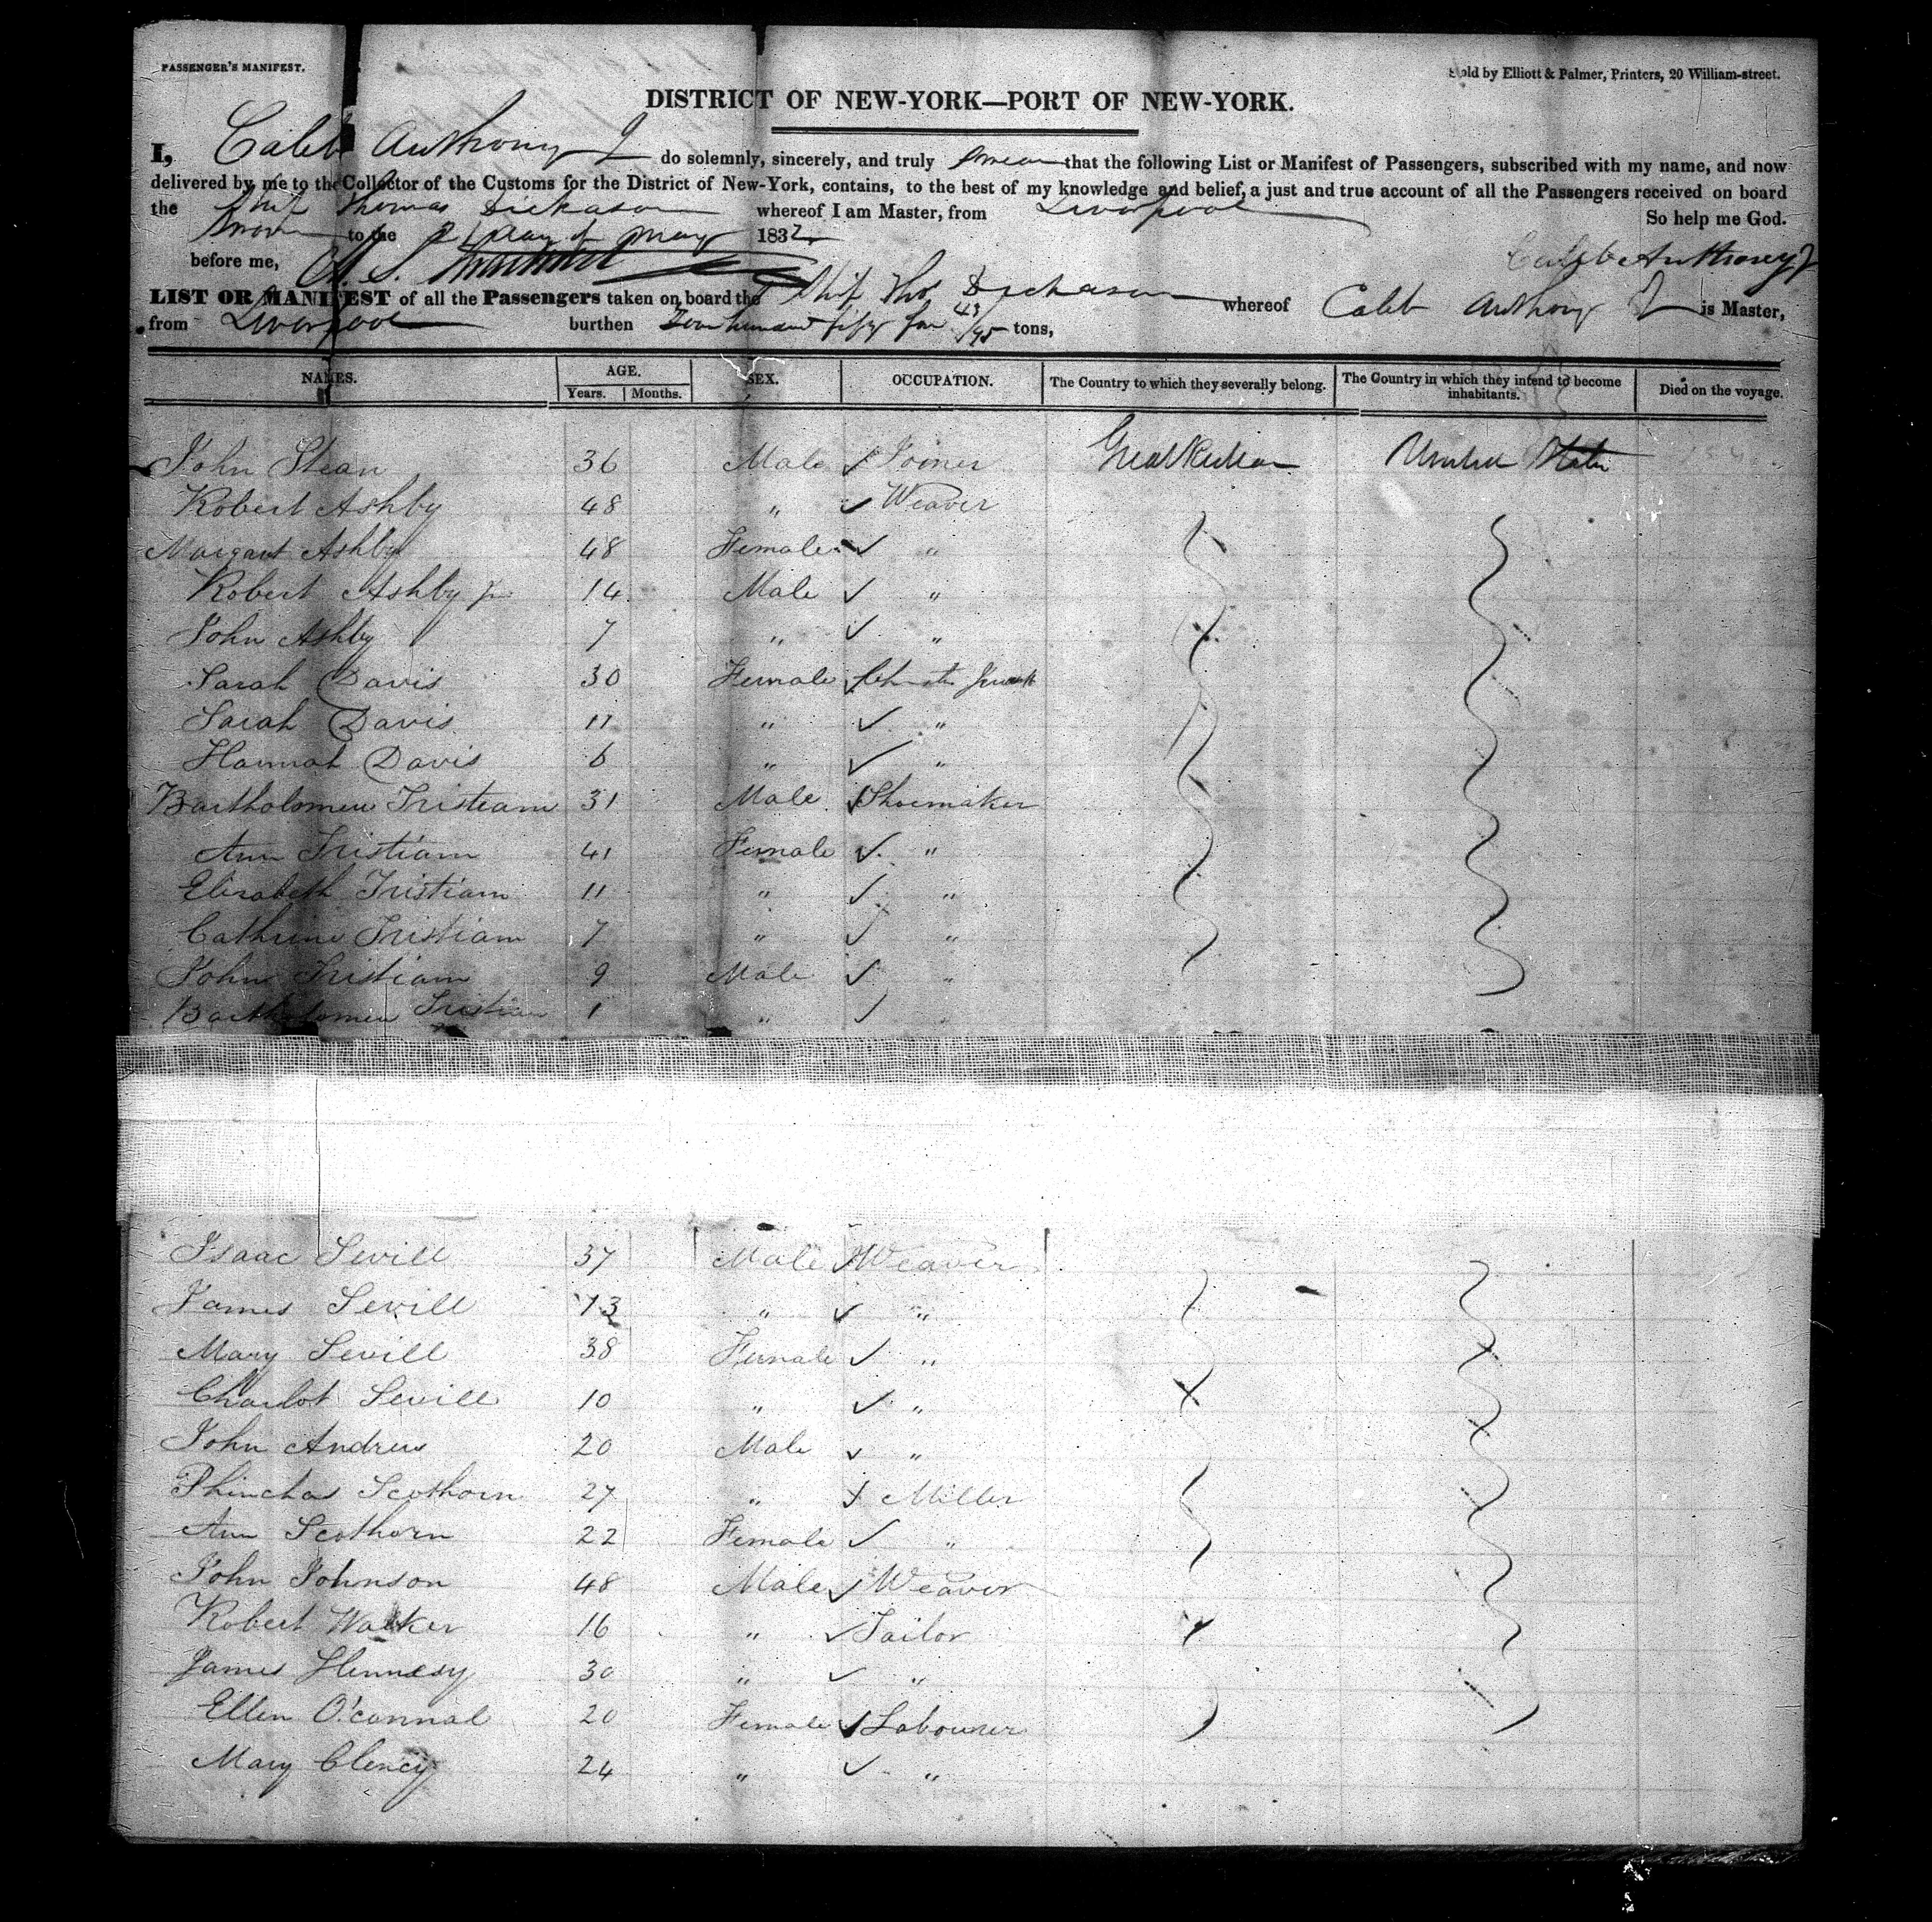 PASSENGER'S MANIFEST.
Sold by Elliott & Palmer, Printers, 20 William-street.
DISTRICT OF NEW-YORK—PORT OF NEW-YORK.
I, Caleb Anthony J do solemnly, sincerely, and truly swear that the following List or Manifest of Passengers, subscribed with my name, and now
delivered by me to the Collector of the Customs for the District of New-York, contains, to the best of my knowledge and belief, a just and true account of all the Passengers received on board
the Ship Thomas Dickason whereof I am Master, from Liverpool So help me God.
Sworn to the 21 day of May 1832
before me, Caleb Anthony J
LIST OR MANIFEST of all the Passengers taken on board the Ship Thos Dickason whereof Caleb Anthony J is Master,
from Liverpool burthen Four hundred fifty four 43/95 tons,
NAMES. AGE. SEX. OCCUPATION. The Country to which they severally belong. The Country in which they intend to become inhabitants. Died on the voyage.
Years. Months.
John Stean 36 Male Joiner Great Britain United States
Robert Ashby 48 " Weaver
Margaret Ashby 48 Female "
Robert Ashby Jr 14 Male "
John Ashby 7 " "
Sarah Davis 30 Female
Sarah Davis 11 " "
Hannah Davis 6 " "
Bartholomew Tristiam 31 Male Shoemaker
Ann Tristiam 41 Female "
Elizabeth Tristiam 11 " "
Cathrine Tristiam 7 " "
John Tristiam 9 Male "
Bartholomew Tristiam 1 " "
Isaac Sevill 37 Male Weaver
James Sevill 13 " "
Mary Sevill 38 Female "
Charlot Sevill 10 " "
John Andrew 20 Male "
Phinehas Scothorn 27 " Miller
Ann Scothorn 22 Female "
John Johnson 48 Male Weaver
Robert Walker 16 " Tailor
James Hennesy 30 " "
Ellen O'connal 20 Female Labourer
Mary Clency 24 " "